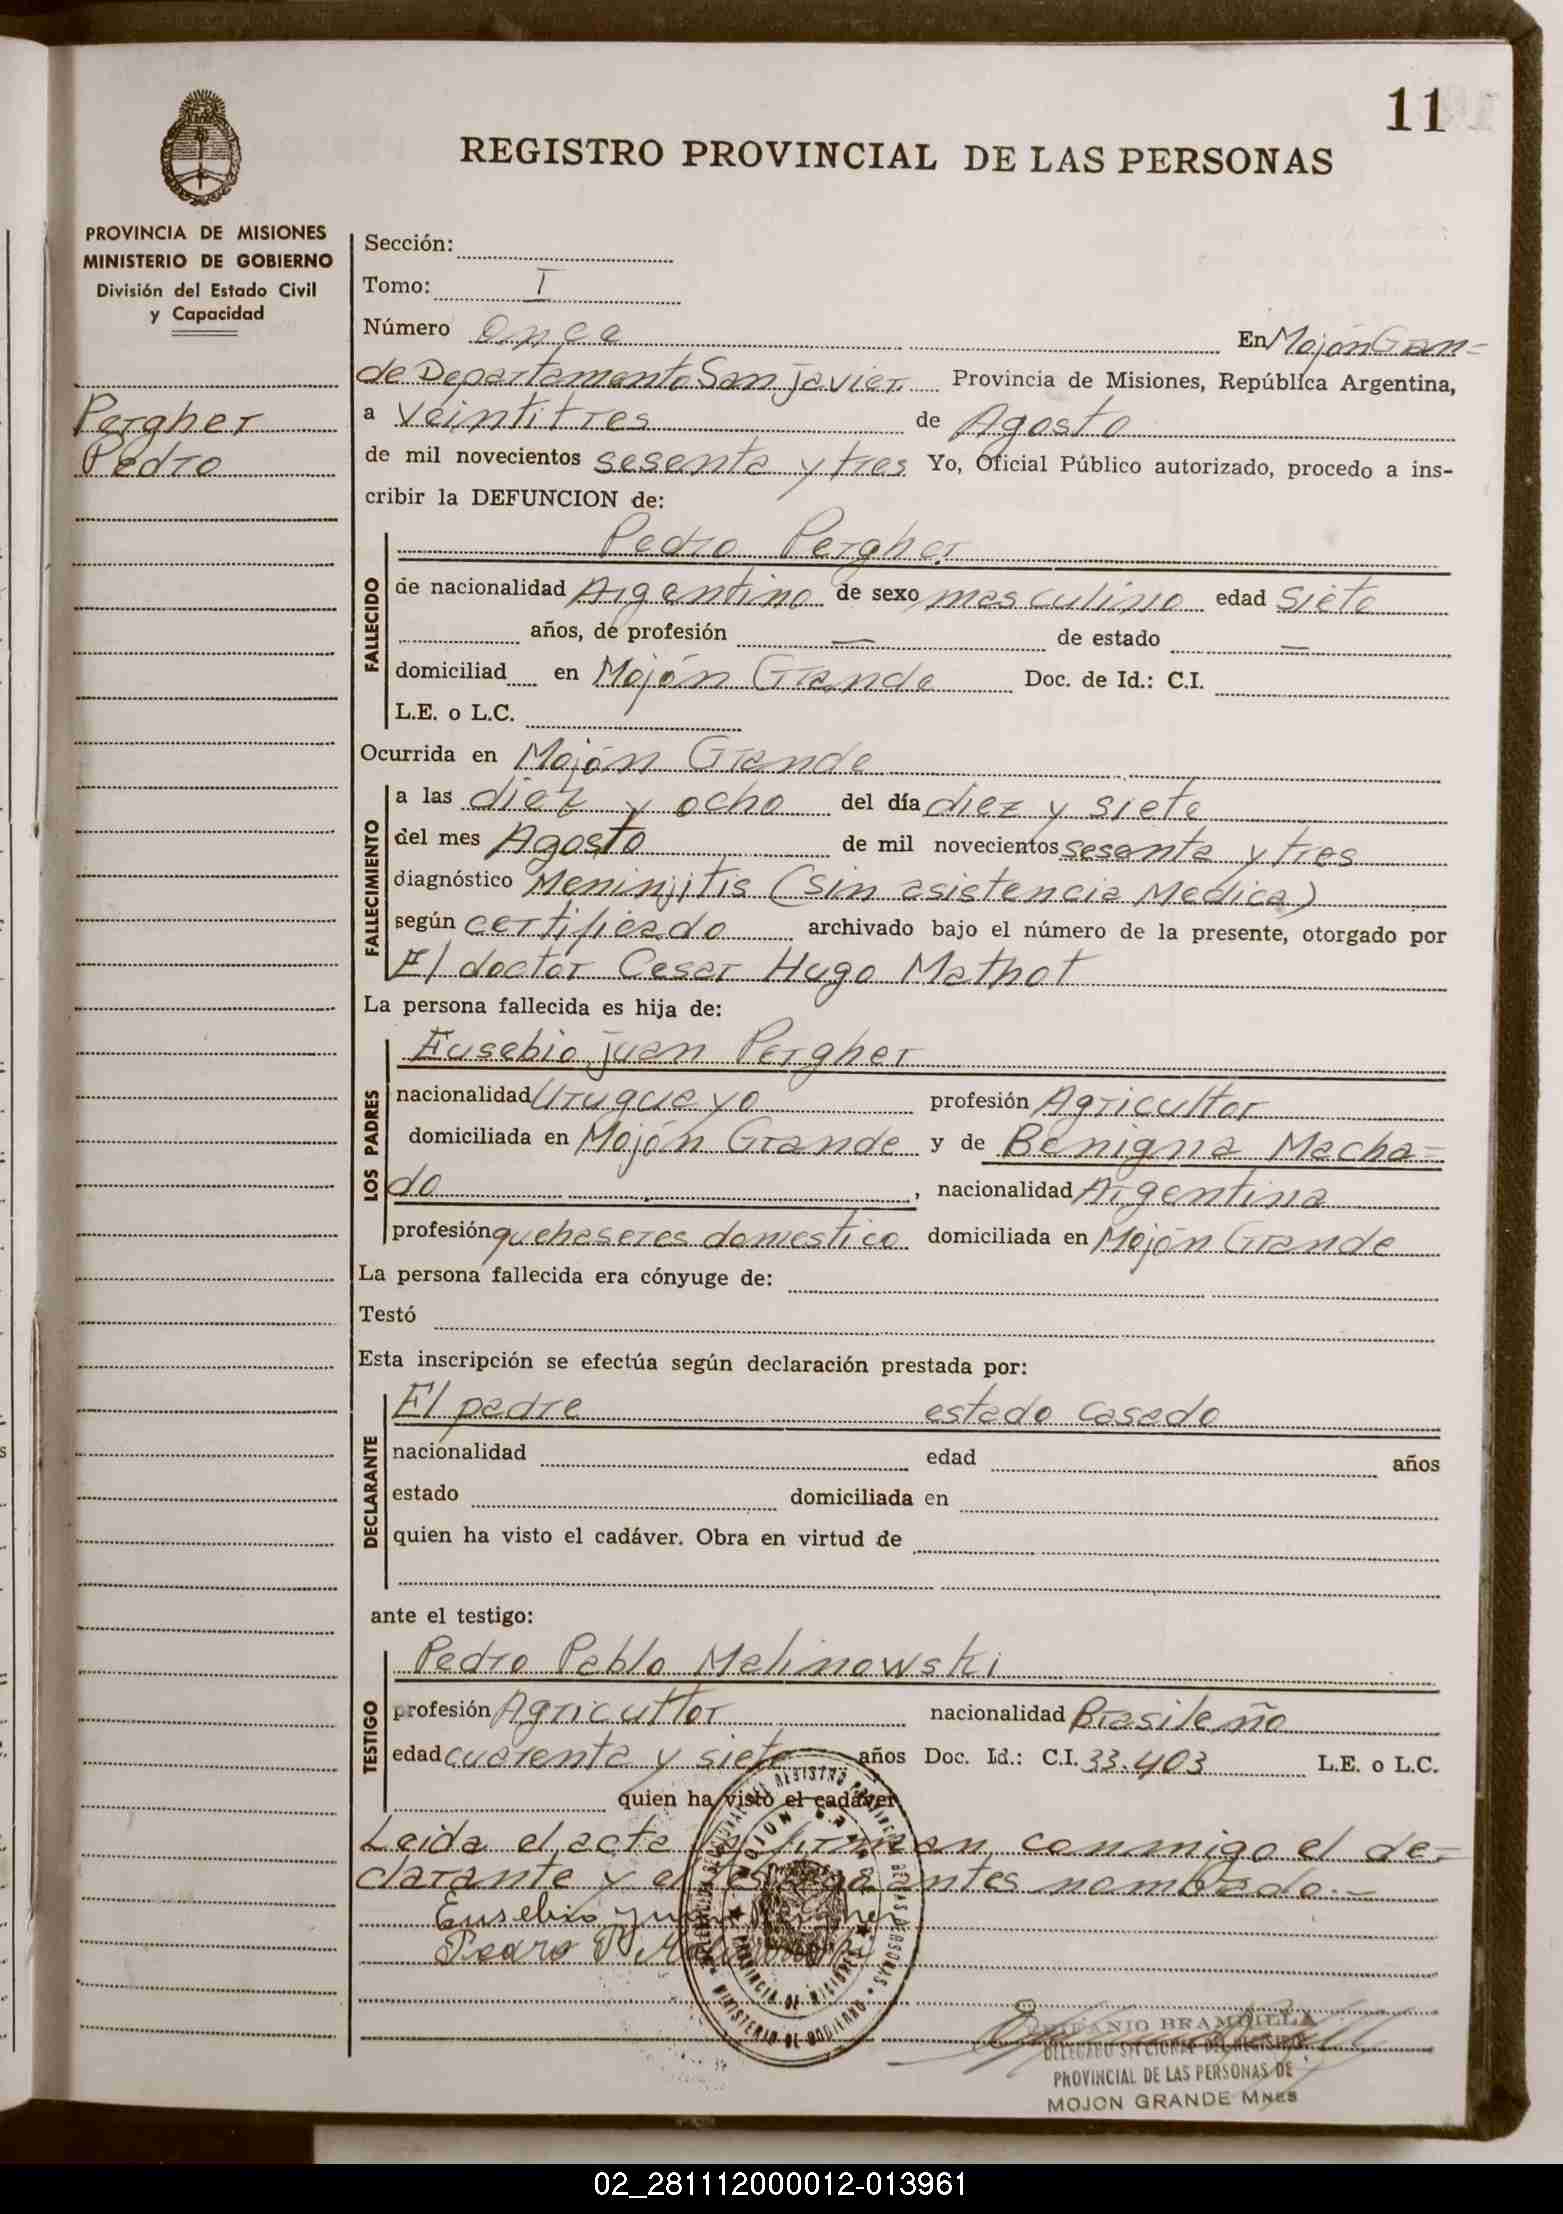 11
REGISTRO PROVINCIAL DE LAS PERSONAS
PROVINCIA DE MISIONES
MINISTERIO DE GOBIERNO
División del Estado Civil
y Capacidad
Pergher
Pedro
Sección:
Tomo: I
Número once En Mojón Gran=
de Departamento San javier Provincia de Misiones, República Argentina,
a Veintitres de Agosto
de mil novecientos sesenta y tres Yo, Oficial Público autorizado, procedo a ins-
cribir la DEFUNCION de:
Pedro Pergher
FALLECIDO
de nacionalidad Argentino de sexo masculino edad Siete
años, de profesión — de estado —
domiciliad en Mojón Grande Doc. de Id.: C.I.
L.E. o L.C.
Ocurrida en Mojón Grande
FALLECIMIENTO
a las diez y ocho del día diez y siete
del mes Agosto de mil novecientos sesenta y tres
diagnóstico Meninjitis (sin asistencia Medica)
según certificado archivado bajo el número de la presente, otorgado por
El doctor Cesar Hugo Mathot
La persona fallecida es hija de:
LOS PADRES
Eusebio juan Pergher
nacionalidad Uruguayo profesión Agricultor
domiciliada en Mojón Grande y de Benigna Macha=
do , nacionalidad Argentina
profesión quehaseres domestico domiciliada en Mojón Grande
La persona fallecida era cónyuge de:
Testó
Esta inscripción se efectúa según declaración prestada por:
DECLARANTE
El padre estado casado
nacionalidad edad años
estado domiciliada en
quien ha visto el cadáver. Obra en virtud de
ante el testigo:
TESTIGO
Pedro Pablo Malinowski
profesión Agricultor nacionalidad Brasileño
edad cuarenta y siete años Doc. Id.: C.I. 33.403 L.E. o L.C.
quien ha visto el cadáver
Leida el acta firman conmigo el de-
clarante y el testigo antes nombrado.-
Eusebio juan Pergher
Pedro P. Malinowski
PROVINCIA DE MISIONES
MINISTERIO DE GOBIERNO
BRAMBILLA
DELEGADO SECCIONAL DEL REGISTRO
PROVINCIAL DE LAS PERSONAS DE
MOJON GRANDE MNES
02_281112000012-013961